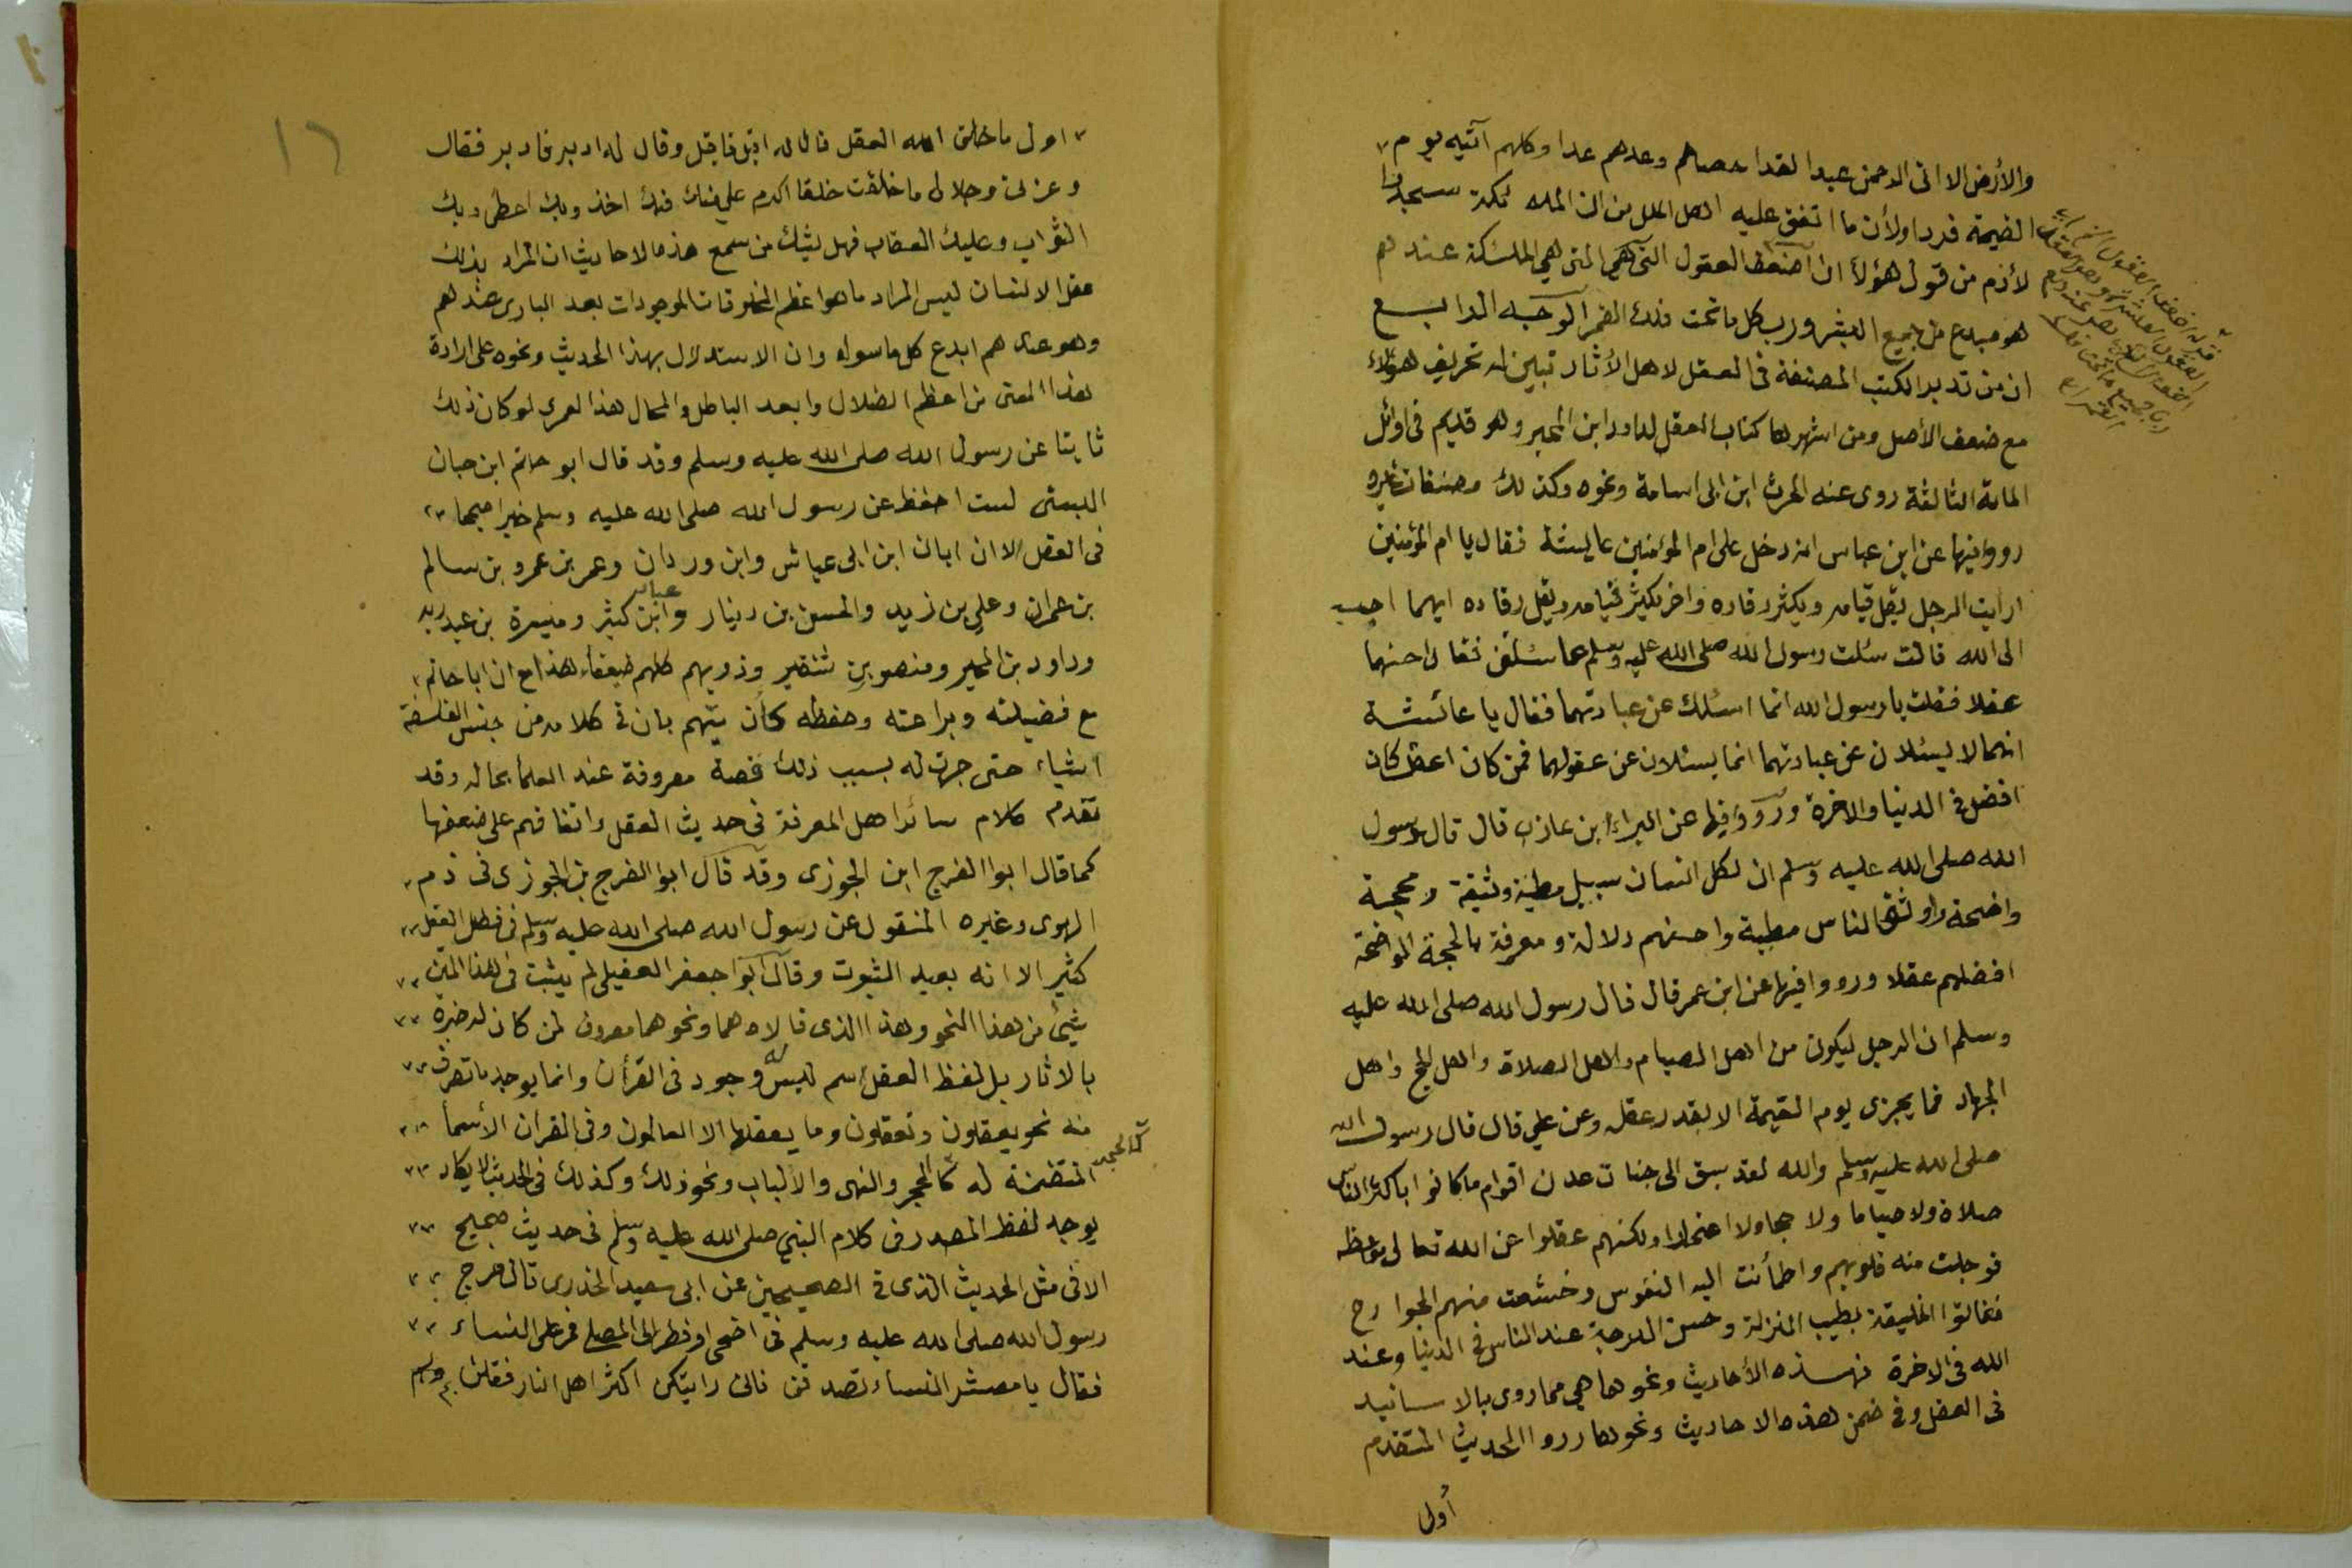 والأرض الا اتى الرحمن عبدا لقد احصاهم وعدهم عدا وكلهم آتيه يوم
القيمة فردا ولأن ما اتفق عليه اهل الملل من ان الملئكة سجدوا
لأدم من قول هؤلاء ان اضعف العقول التى هي الملئكة عندهم
هو مبدع جميع البشر ورب كل ما تحت فلك القمر الوجه الرابع
ان من تدبر الكتب المصنفة فى العقل لاهل الأثار تبين له تحريف هؤلاء
مع ضعف الأصل ومن اشهرها كتاب العقل لداود ابن المحبر وهو قديم فى اوائل
الماية الثالثة روى عنه الحرث ابن ابى اسامة ونحوه وكذلك مصنفات غيره
رووا فيها عن ابن عباس انه دخل على ام المؤمنين عايشة فقال يا ام المؤمنين
ارايت الرجل يقل قيامه ويكثر رقاده واخر يكثر قيامه ويقل رقاده ايهما احب
الى الله قالت سئلت رسول الله صلى الله عليه وسلم عما سئلتنى فقال احسنهما
عقلا فقلت يا رسول الله انما اسئلك عن عبادتهما فقال يا عائشة
انهما لا يسئلان عن عبادتهما انما يسئلان عن عقولهما فمن كان اعقل كان
افضل فى الدنيا والاخرة ورووا فيها عن البراء ابن عازب قال قال رسول
الله صلى الله عليه وسلم ان لكل انسان سبيل مطية وثيقة ومحجة
واضحة واوثق الناس مطية واحسنهم دلالة ومعرفة بالحجة الواضحة
افضلهم عقلا ورووا فيها عن ابن عمر قال قال رسول الله صلى الله عليه
وسلم ان الرجل ليكون من اهل الصيام واهل الصلاة واهل الحج واهل
الجهاد فما يجزى يوم القيمة الا بقدر عقله وعن علي قال قال رسول الله
صلى الله عليه وسلم والله لقد سبق الى جنات عدن اقوام ما كانوا باكثر الناس
صلاة ولا صياما ولا حجا ولا اعتمارا ولكنهم عقلوا عن الله تعالى مواعظه
فوجلت منه قلوبهم واطمأنت اليه النفوس وخشعت منهم الجوارح
ففاقوا الخليقة بطيب المنزلة وحسن الدرجة عند الناس فى الدنيا وعند
الله فى الاخرة فهذه الأحاديث ونحوها هي مما روى بالاسانيد
فى العقل وفى ضمن هذه الاحاديث ونحوها رووا الحديث المتقدم
أول
١٦
اول ما خلق الله العقل قال له اقبل فاقبل وقال له ادبر فادبر فقال
وعزتى وجلالى ما خلقت خلقا اكرم علي منك فبك اخذ وبك اعطى وبك
الثواب وعليك العقاب فهل يشك من سمع هذه الاحاديث ان المراد بذلك
عقل الانسان ليس المراد ما هو اعظم المخلوقات الموجودات بعد البارى عندهم
وهو عندهم ابدع كل ما سواه وان الاستدلال بهذا الحديث ونحوه على ارادة
هذا المعنى من اعظم الضلال وابعد الباطل والمحال هذا لعمرى لو كان ذلك
ثابتا عن رسول الله صلى الله عليه وسلم وقد قال ابو حاتم ابن حبان
البستى لست احفظ عن رسول الله صلى الله عليه وسلم خبرا صحيحا
فى العقل الا ان ابان ابن ابى عياش وابن وردان وعمر بن عمرو بن سالم
بن عمران وعلي بن زيد والحسن بن دينار وعباد ابن كثير وميسرة بن عبد ربه
وداود بن المحبر ومنصور بن شقير وذويهم كلهم ضعفاء هذا مع ان ابا حاتم
مع فضيلته وبراعته وحفظه كان يتهم بان فى كلامه من جنس الفلسفة
اشياء حتى جرت له بسبب ذلك قصة معروفة عند العلما بحاله وقد
تقدم كلام سائر اهل المعرفة فى حديث العقل واتفاقهم على ضعفها
كما قال ابوا الفرج ابن الجوزى وقد قال ابوا الفرج بن الجوزى فى ذم
الهوى وغيره المنقول عن رسول الله صلى الله عليه وسلم فى فضل العقل
كثير الا انه بعيد الثبوت وقال ابوا جعفر العقيلى لم يثبت فى هذا المتن
شيئ من هذا النحو وهذا الذى قالاه هما ونحوهما معروف لمن كان له خبرة
بالاثار بل لفظ العقل اسم ليس له وجود فى القرأن وانما يوجد ما تصرف
منه نحو يعقلون وتعقلون وما يعقلها الا العالمون وفى القران الأسما
المتضمنة له كالحجر والنهى والالباب ونحو ذلك وكذلك فى الحديث لا يكاد
كالحجر
يوجد لفظ المصدر فى كلام النبي صلى الله عليه وسلم فى حديث صحيح
الا فى مثل الحديث الذى فى الصحيحين عن ابى سعيد الخدرى قال خرج
رسول الله صلى الله عليه وسلم فى اضحى او فطر الى المصلى فمر على النساء
فقال يا معشر النساء تصدقن فانى رايتكن اكثر اهل النار فقلن